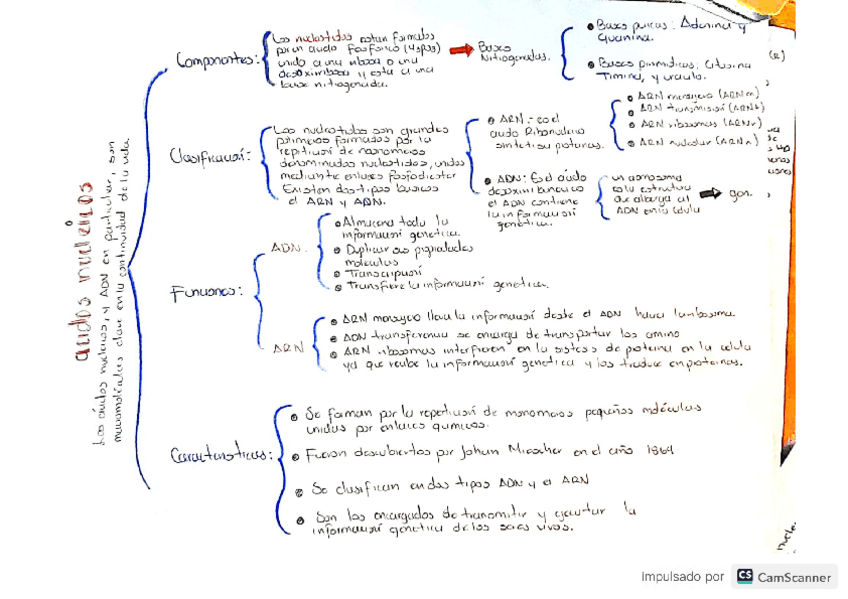 ácidos nucleicos
Los ácidos nucleicos, y ADN en particular, son
macromoléculas clave en la continuidad de la vida
Componentes:
Los nucleotidos estan formados
por un acido fosforico (H3PO4)
unido a una ribosa o una
desoxirribosa y esta a una
base nitrogenada.
Bases
Nitrogenadas.
Bases puricas: Adenina y
Guanina.
Bases pirimidicas: Citosina
Timina, y uracilo.
Clasificación:
Los nucleotidos son grandes
formados por la
repetición de monomeros
denominados nucleotidos, unidos
mediante enlaces fosfodiester
Existen dos tipos basicos
el ARN y ADN.
ARN: es el
acido Ribonucleico
sintetiza proteinas.
ARN mensajero (ARNm)
ARN transmisión (ARNt)
ARN ribosomas (ARNr)
ARN nucleolar (ARNn)
ADN: Es el ácido
desoxirribonucleico
el ADN contiene
la información
genética.
un cromosoma
es la estructura
que alberga al
ADN en la celula
gen.
Funciones:
ADN
Almacena toda la
información genetica.
Duplicar sus
moléculas
Transcripción
Transfiere la información genetica.
ARN
ARN mensajero lleva la información desde el ADN hacia
ADN transferencia se encarga de transportar los amino
ARN ribosomas interfieren en la de proteina en la celula
ya que recibe la información genetica y las traduce en proteinas.
Caracteristicas:
Se forman por la repetición de monomeros pequeñas moléculas
unidas por enlaces quimicos.
Fueron descubiertos por Johan Miescher en el año 1869
Se clasifican en dos tipos ADN y el ARN
Son los encargados de transmitir y ejecutar la
información genetica de los seres vivos.
Impulsado por CS CamScanner